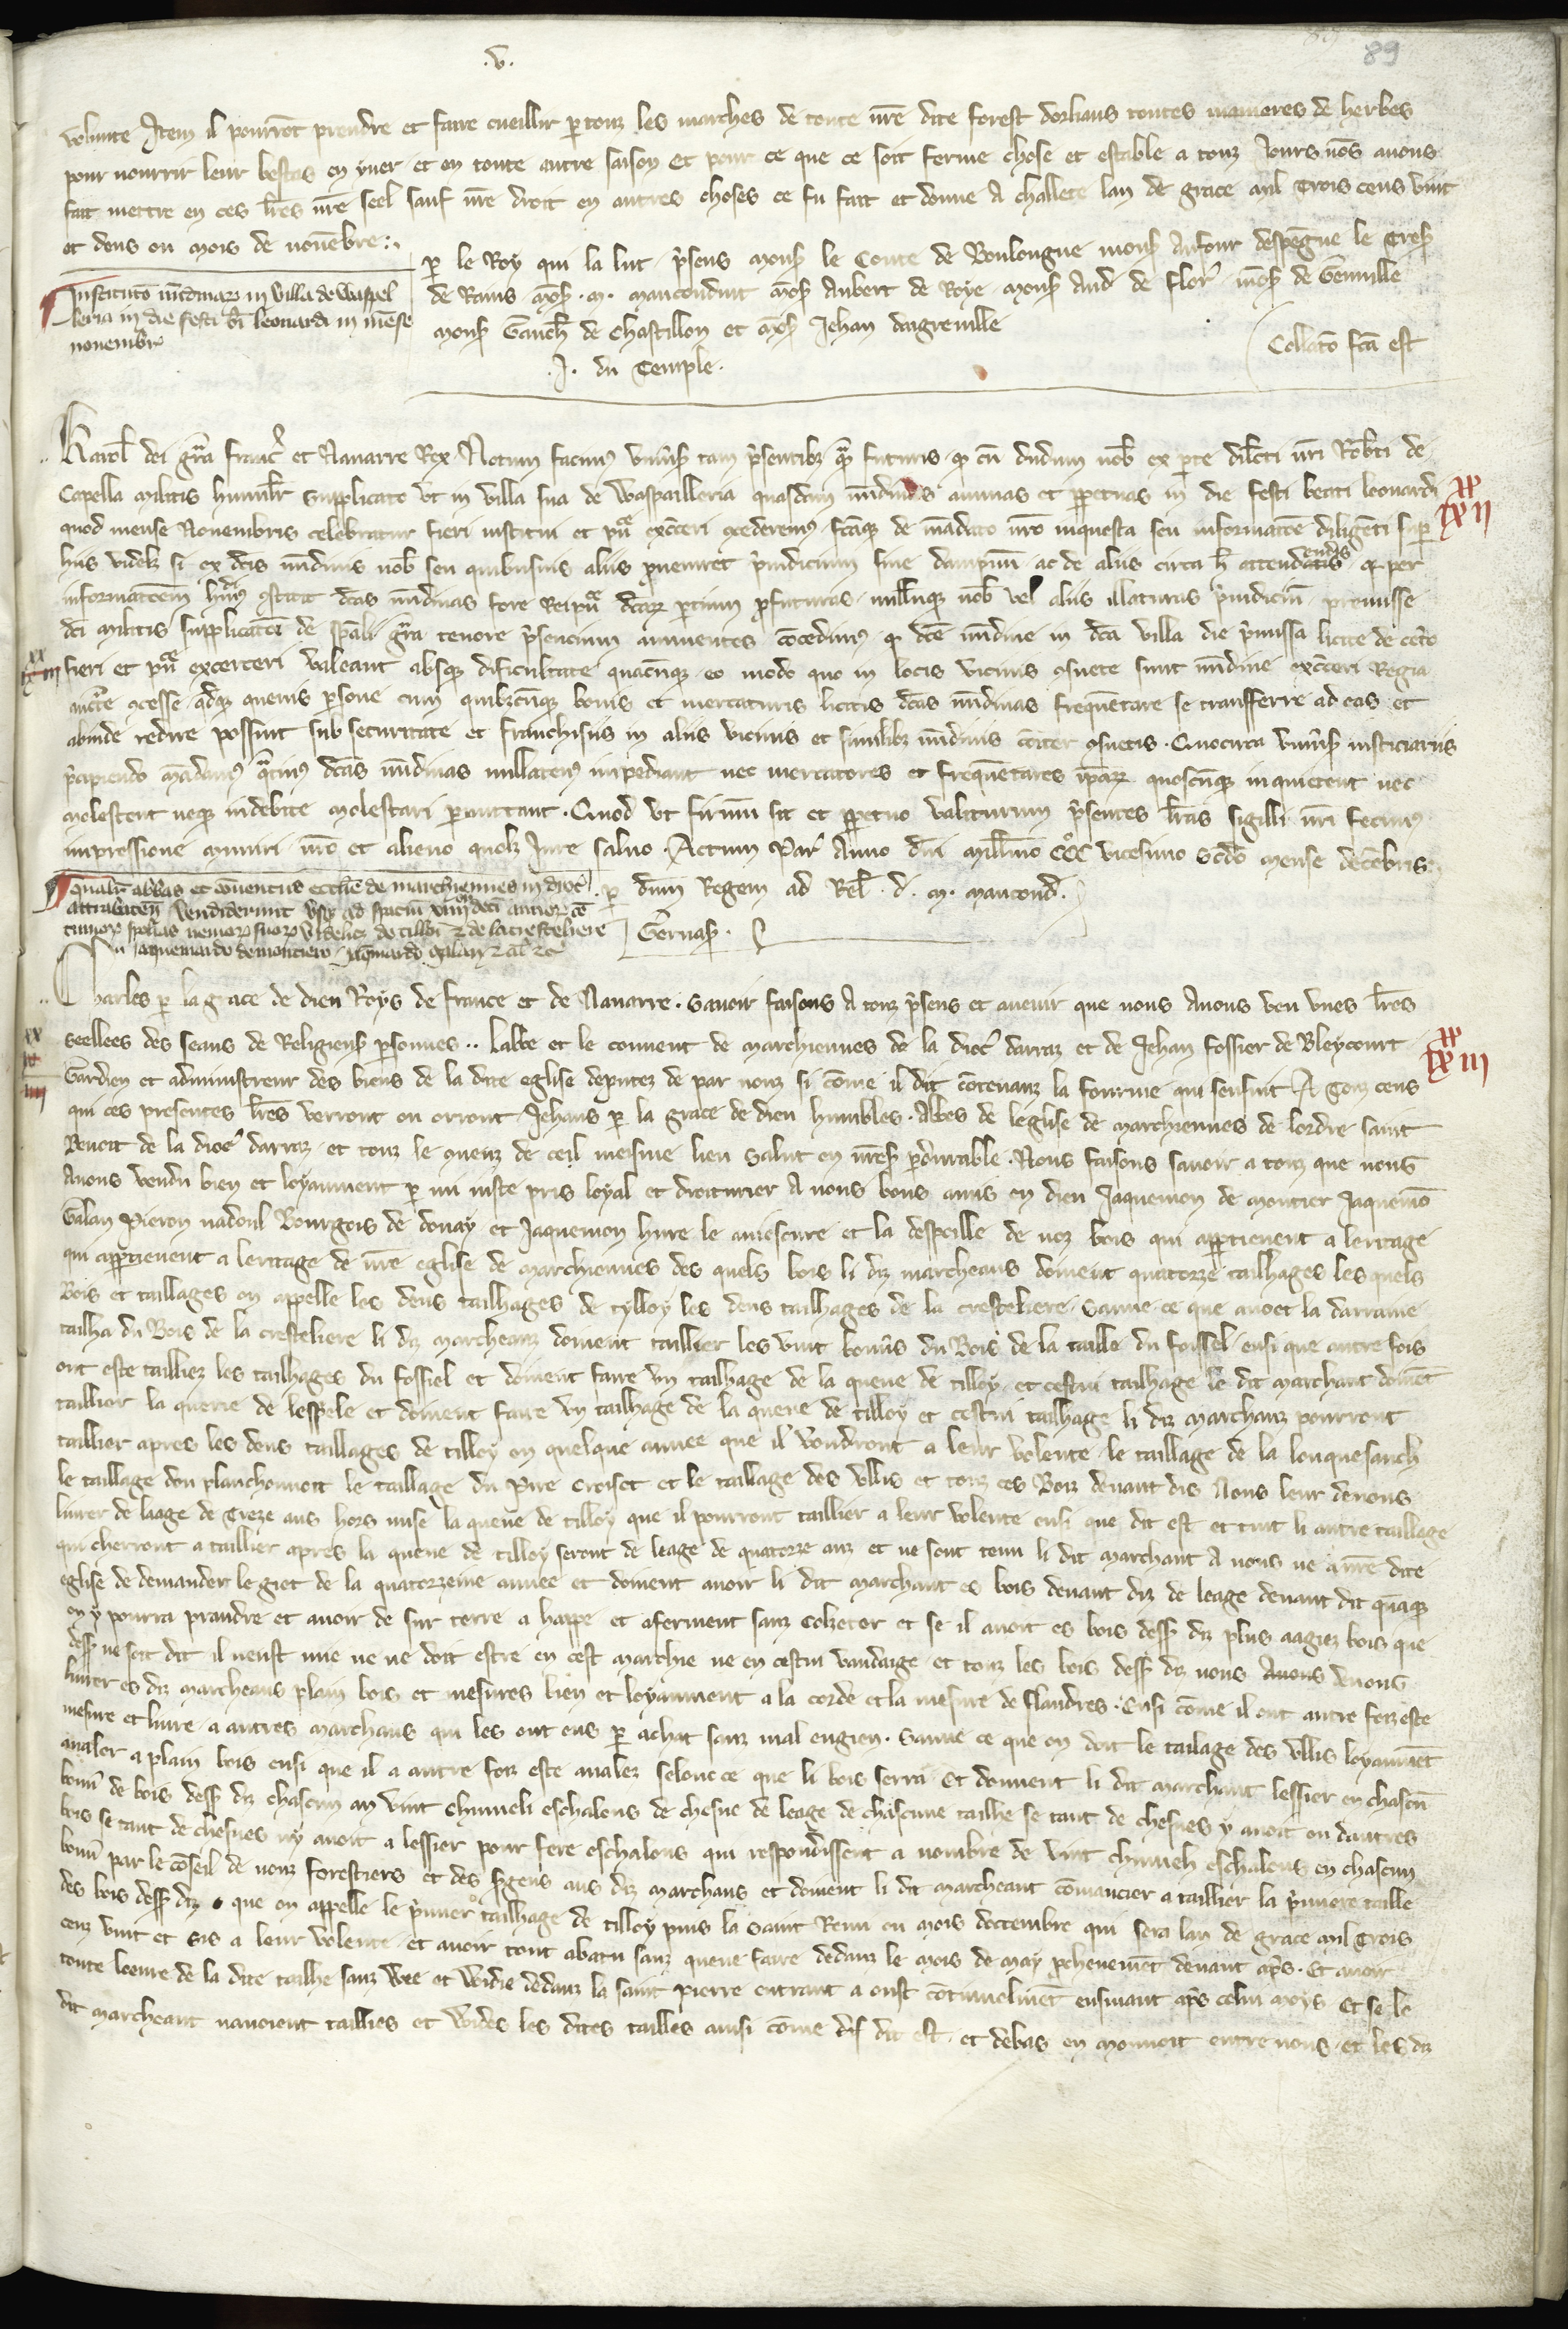 .v.
89
volunte Item il pourrōt prendre et faire cueillir p touz les marches de toute nr̄e dite forest dorliens toutes manieres de herbes
pour nourrir leur bestes en yver et en toute autre saison Et pour ce que ce soit ferme chose et estable a touz Jours nōs avons
fait mettre en ces lr̄es nr̄e seel sauf nr̄e droit en autres choses ce fu fait et donne A challete lan de grace mil Trois cens vint
et deus ou mois de novēbre
p le Roy qui la lut p̄sens mons le Conte de Bouloungne mons Anfour despēgne le Tres
Institutō nūdinar in villa de Waspel
leria in die festi bī leonardi in mēse
novembr
de Rains mōs .M. mauconduit mōs Aubert de Roye mons And de flor mōs de Genville
mons Gauch de Chastillon et mōs Jehan daigreville
Collatō fcā est
.J. du Temple.
Karol dei gr̄a franc et Navarre Rex Notum facim univs tam p̄sentibz q̄ futuris q cū dudum nob ex pte dilcti nr̄i Robti de
Capella militis humilr supplicato ut in villa sua de Waspailleria quasdam nūdinas annuas et ppetuas in die festi beati leonardi
xx lxii
quod mense Novembris celebratur fieri institui et pu exceri cederem fcāq de mādato nr̄o inquesta seu informatōe diligēti sup
hiis videlz si ex dcīs nūdinis nob seu quibusvis aliis pveniret p̄iudicium sive dampnū ac de aliis circa h attendendis q per
informatōem hmōi cstitit dcās nūdinas fore Reipu dcar pcium pfuturas nullūq nob vel aliis illaturas p̄iudiciū premisse
dcī militis supplicatōi de spāli gr̄a tenore p̄sencium annuentes cōcedim q dcē nūdine in dcā villa die p̄missa licite de cetō
fieri et pu excerceri valeant absq dificultate quacūq eo modo quo in locis vicinis csuete sunt nūdine exceri Regia
aucte cesse adq quevis psone cum quibzcūq bonis et mercaturis licitis dcās nūdinas frequētare se transferre ad eas et
abinde redire possint sub securitate et franchisiis in aliis vicinis et similibz nūdinis cōiter csuetis . Quocirca univs iusticiariis
p̄cipiendo mādam q̄tin dcās nūdinas nullaten impediant nec mercatores et frequētates ip̄ar quoscūq inquietent nec
molestent neq indebite molestari pmittant . Quod ut firmū sit et ppetuo valiturum p̄sentes lr̄as sigilli nr̄i fecim
impressione muniri nr̄o et alieno quolz Jure salvo . Actum Par Anno dnī millīmo CCC vicesimo scdō mense decēbris
p dnm Regem ad Rel . d. M. maucond.
Gervas.
qualit abbas et cōventus ecclie de marchiennes in dioc
attrabaten vendiderunt usq ad spaciū xiiii
Jaquemardo de monciaco Jaqmardo galan
Charles p la grace de dieu Roys de france et de Navarre . Savoir faisons A touz p̄sens et avenir que nous Avons veu unes lr̄es
seellees des seaus de Religieus psonnes .. labbe et le couvent de marchiennes de la dioc darraz et de Jehan fossier de Bleycourt
xx lxiii
Gardien et administreur des biens de la dite eglise deputez de par nouz si cōme il dit cōtenanz la fourme qui sensuit A Touz ceus
qui ces presentes lr̄es verront ou orront Jehans p la grace de dieu humbles Abbes de leglise de marchiennes de lordre saint
Benoit de la dioc darraz et touz le cvenz de ceil meisme lieu salut en nr̄es pdurable . Nous faisons savoir a touz que nous
Avons vendu bien et loyaument p un iuste pris loyal et droiturier A nous bons amis en dieu Jaquemon de moncier Jaquemō
Galan Pieron nadoul Bourgois de douay et Jaquemon hure le amesure et la despoille de noz bois qui apptienent a leritage
qui apptienent a leritage de nr̄e eglise de marchiennes des quels bois li diz marcheans doivent quatorze tailhages les quels
Bois et taillages on appelle les deus tailhages de tylloy les deus tailhages de la cresteliere Sauve ce que avoec la darraine
tailha du Bois de la cresteliere li diz marcheanz doivent taillier les vint bonūs du Bois de la taille du foissel ensi que autre fois
ont este tailliez les tailhages du fossiel et doivent faire un tailhage de la queue de tilloy et cestui tailhage le dit marchant doivēt
taillier la querie de lespele et doivent faire un tailhage de la queue de tilloy et cestui tailhage li diz marchanz pourront
taillier apres les deus taillages de tilloy en quelque annee que il voudront a leur volente le taillage de la louquesauch
le taillage dou planchonnoit le taillage du Pire Croiset et le taillage des ullis et touz ces Boiz devant dis Nous leur devons
livrer de laage de Treze ans hors mise la queue de tilloy que il pourront taillier a leur volente ensi que dit est et tuit li autre taillage
qui cherront a taillier apres la queue de tilloy seront de leage de quatorze anz et ne sont tenu li dit marchant A nous ne a nr̄e dite
eglise de demander le giet de la quatorzeime annee et doivent avoir li dit marchant es bois devant diz de leage devant dit quāq
on y pourra prandre et avoir de sur terre a happe et aferment sanz Colzetor et se il avoit es bois dess diz plus aagiez bois que
dess ne soit dit il neust mie ne ne doit estre en cest marchie ne en cestui vandaige et touz les bois dess diz nous Avons devons
livrer es diz marcheans plain bois et mesures bien et loyaument a la corde et la mesure de flandres . Ensi cōme il ont autre foiz este
mesure et livre a autres marchans qui les ont eus p achat sanz mal engien . Sauve ce que on doit le tailage des ullis loyaumēt
avaler a plain bois ensi que il a autre foiz este avalez selonc ce que li bois serra . Et donnent li dit marchant lessier en chascū
bonū de bois dess diz chascun an vint chinneli eschalons de chesne de leage de chascune tailhe se tant de chesnes y avoit ou dautres
bois se tant de chesnes ny avoit a lessier pour fere eschalons qui respondissent a nombre de vint chinneli eschalons en chascun
bonū par le cōseil de nouz forestiers et des sgens aus diz marchans et doivent li dit marcheant cōmancier a taillier la p̄miere taille
des bois dess diz que on appelle le p̄mier tailhage de tilloy puis la saint Remi ou mois doctembre qui sera lan de grace mil Trois
cenz vint et sis a leur volente et avoir tout abatu sanz queue faire dedanz le mois de may pchenemēt devant aps . Et avoir
toute loevre de la dite tailhe sanz wee et widie dedanz la saint Pierre entrant a oust cōtinuelmēt ensivant aps celui moys Et se le
dit marcheant navoient tailliés et widés les dites tailles ausi cōme des dit est et debas en mouvoit entre nous et les diz